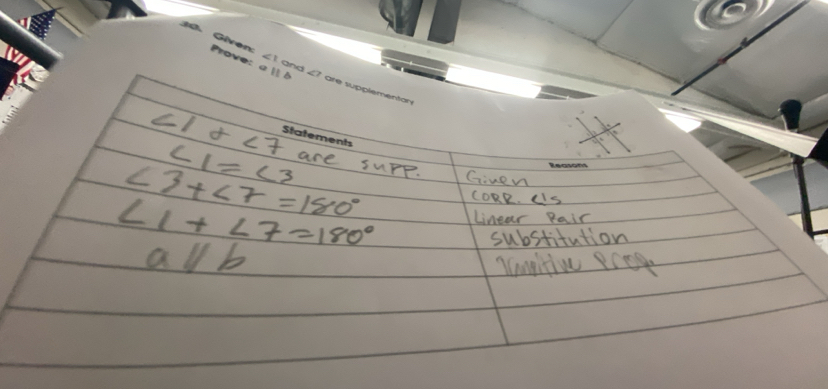 30. Given: ∠1 and ∠7 are supplementary
Prove: a || b
Statements
Reasons
∠1 & ∠7 are supp.
Given
∠1 = ∠3
CORR. ∠'s
∠3 + ∠7 = 180°
Linear Pair
∠1 + ∠7 = 180°
substitution
a || b
Transitive prop.